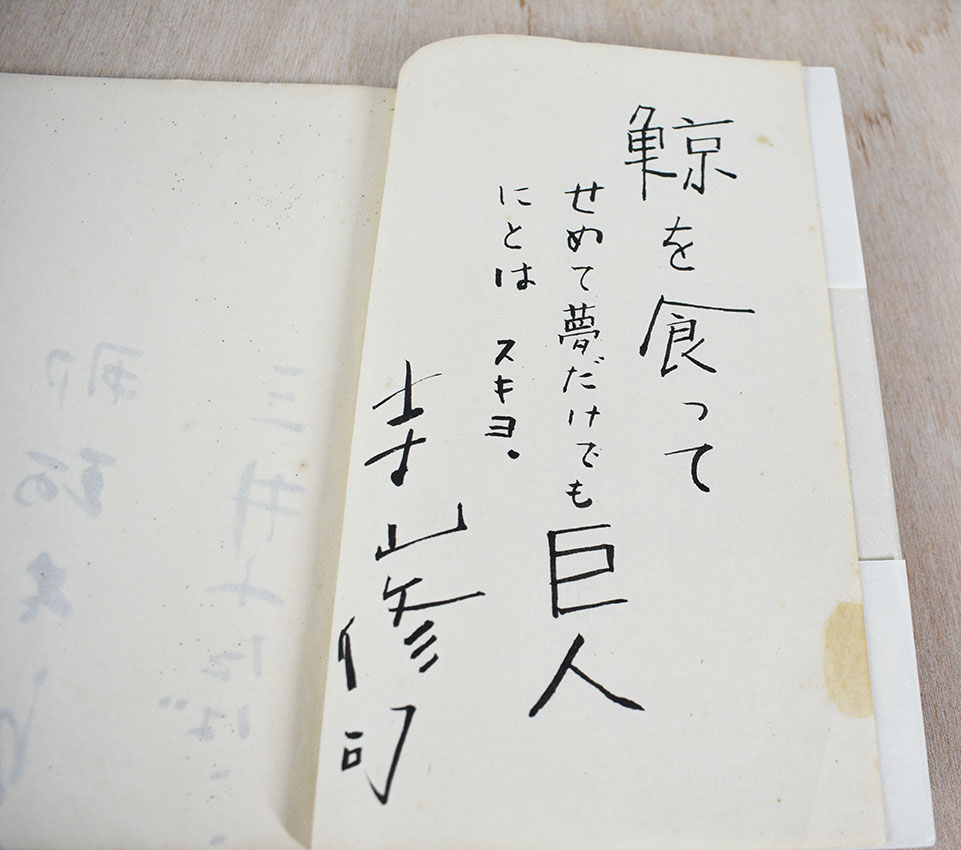 鯨を食って
せめて夢だけでも巨人
にとは スキヨ.
寺山修司
三井